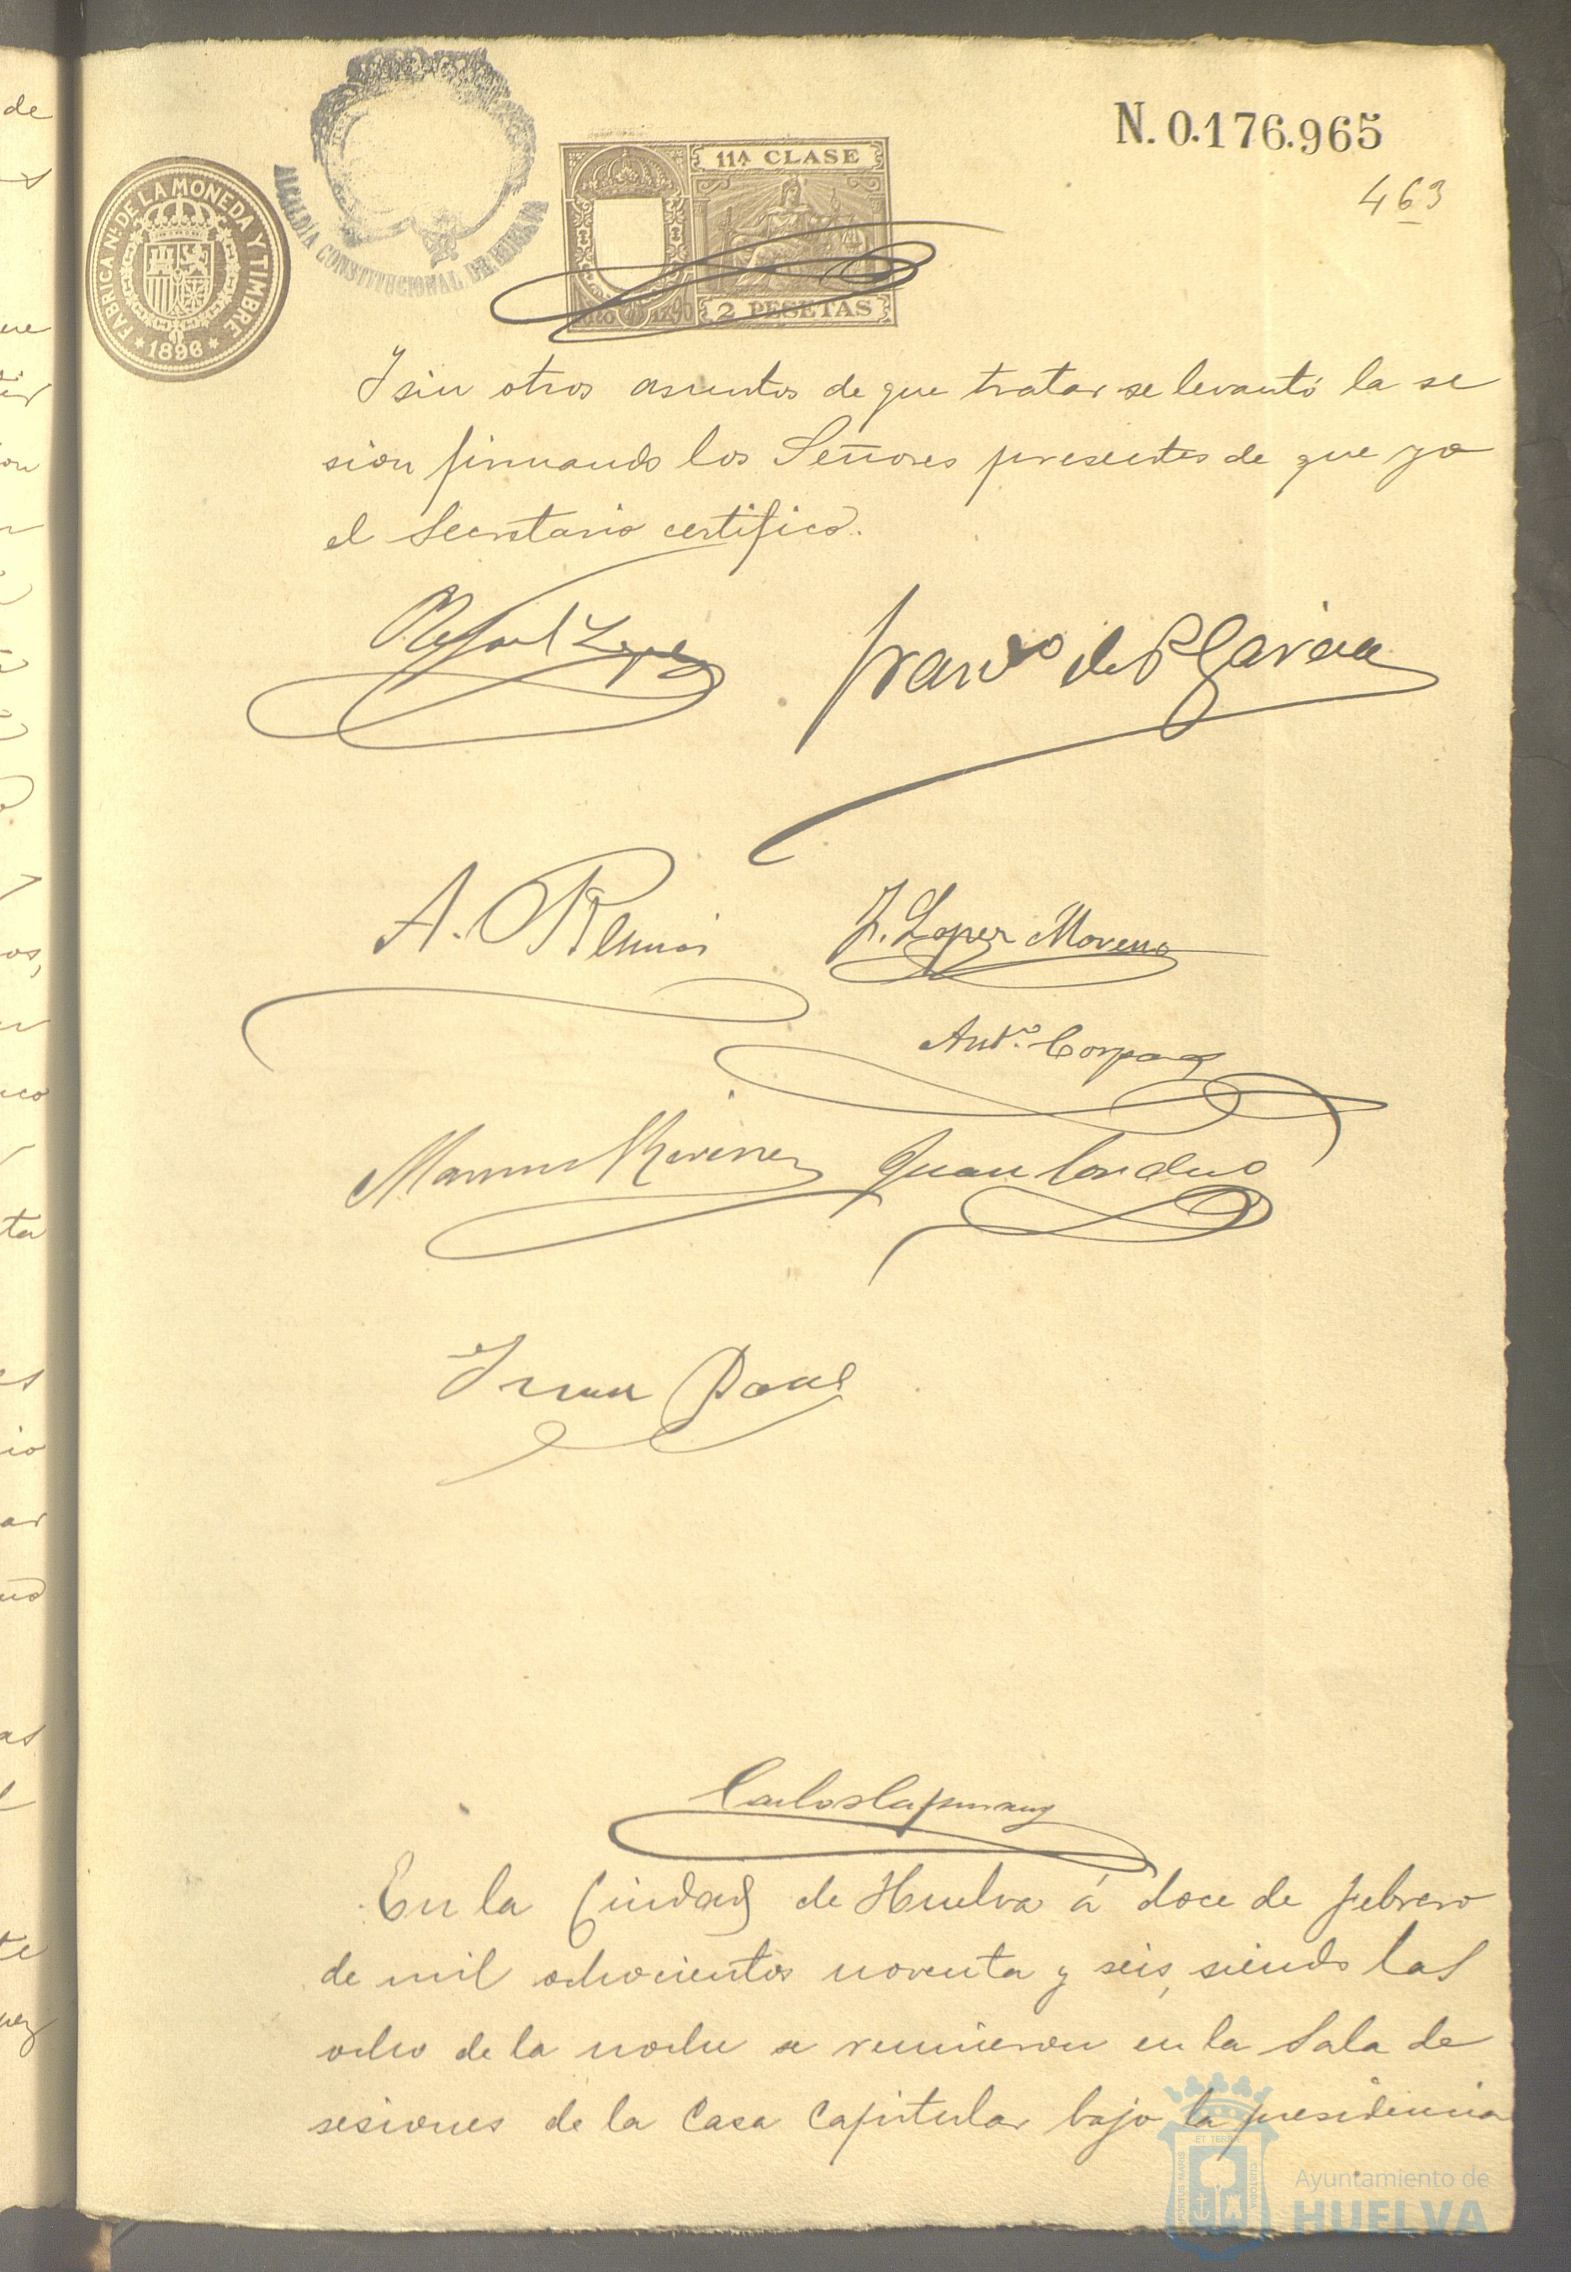 N. 0.176.965
463
FABRICA NL. DE LA MONEDA Y TIMBRE
* 1896 *
ALCALDÍA CONSTITUCIONAL DE HUELVA
11ª CLASE
2 PESETAS
Y sin otros asuntos de que tratar se levantó la se
sion firmando los Señores presentes de que yo
el Secretario certifico.
Rafael Lopez
Franco de P Garcia
A.
J. Lopez Moreno
Anto. Corpas
Juan Cordero
Juan
Carlos
En la Ciudad de Huelva á doce de Febrero
de mil ochocientos noventa y seis, siendo las
ocho de la noche se reunieron en la Sala de
sesiones de la Casa Capitular bajo la presidencia
PORTUS MARIS ET TERRE CUSTODIA
Ayuntamiento de
HUELVA